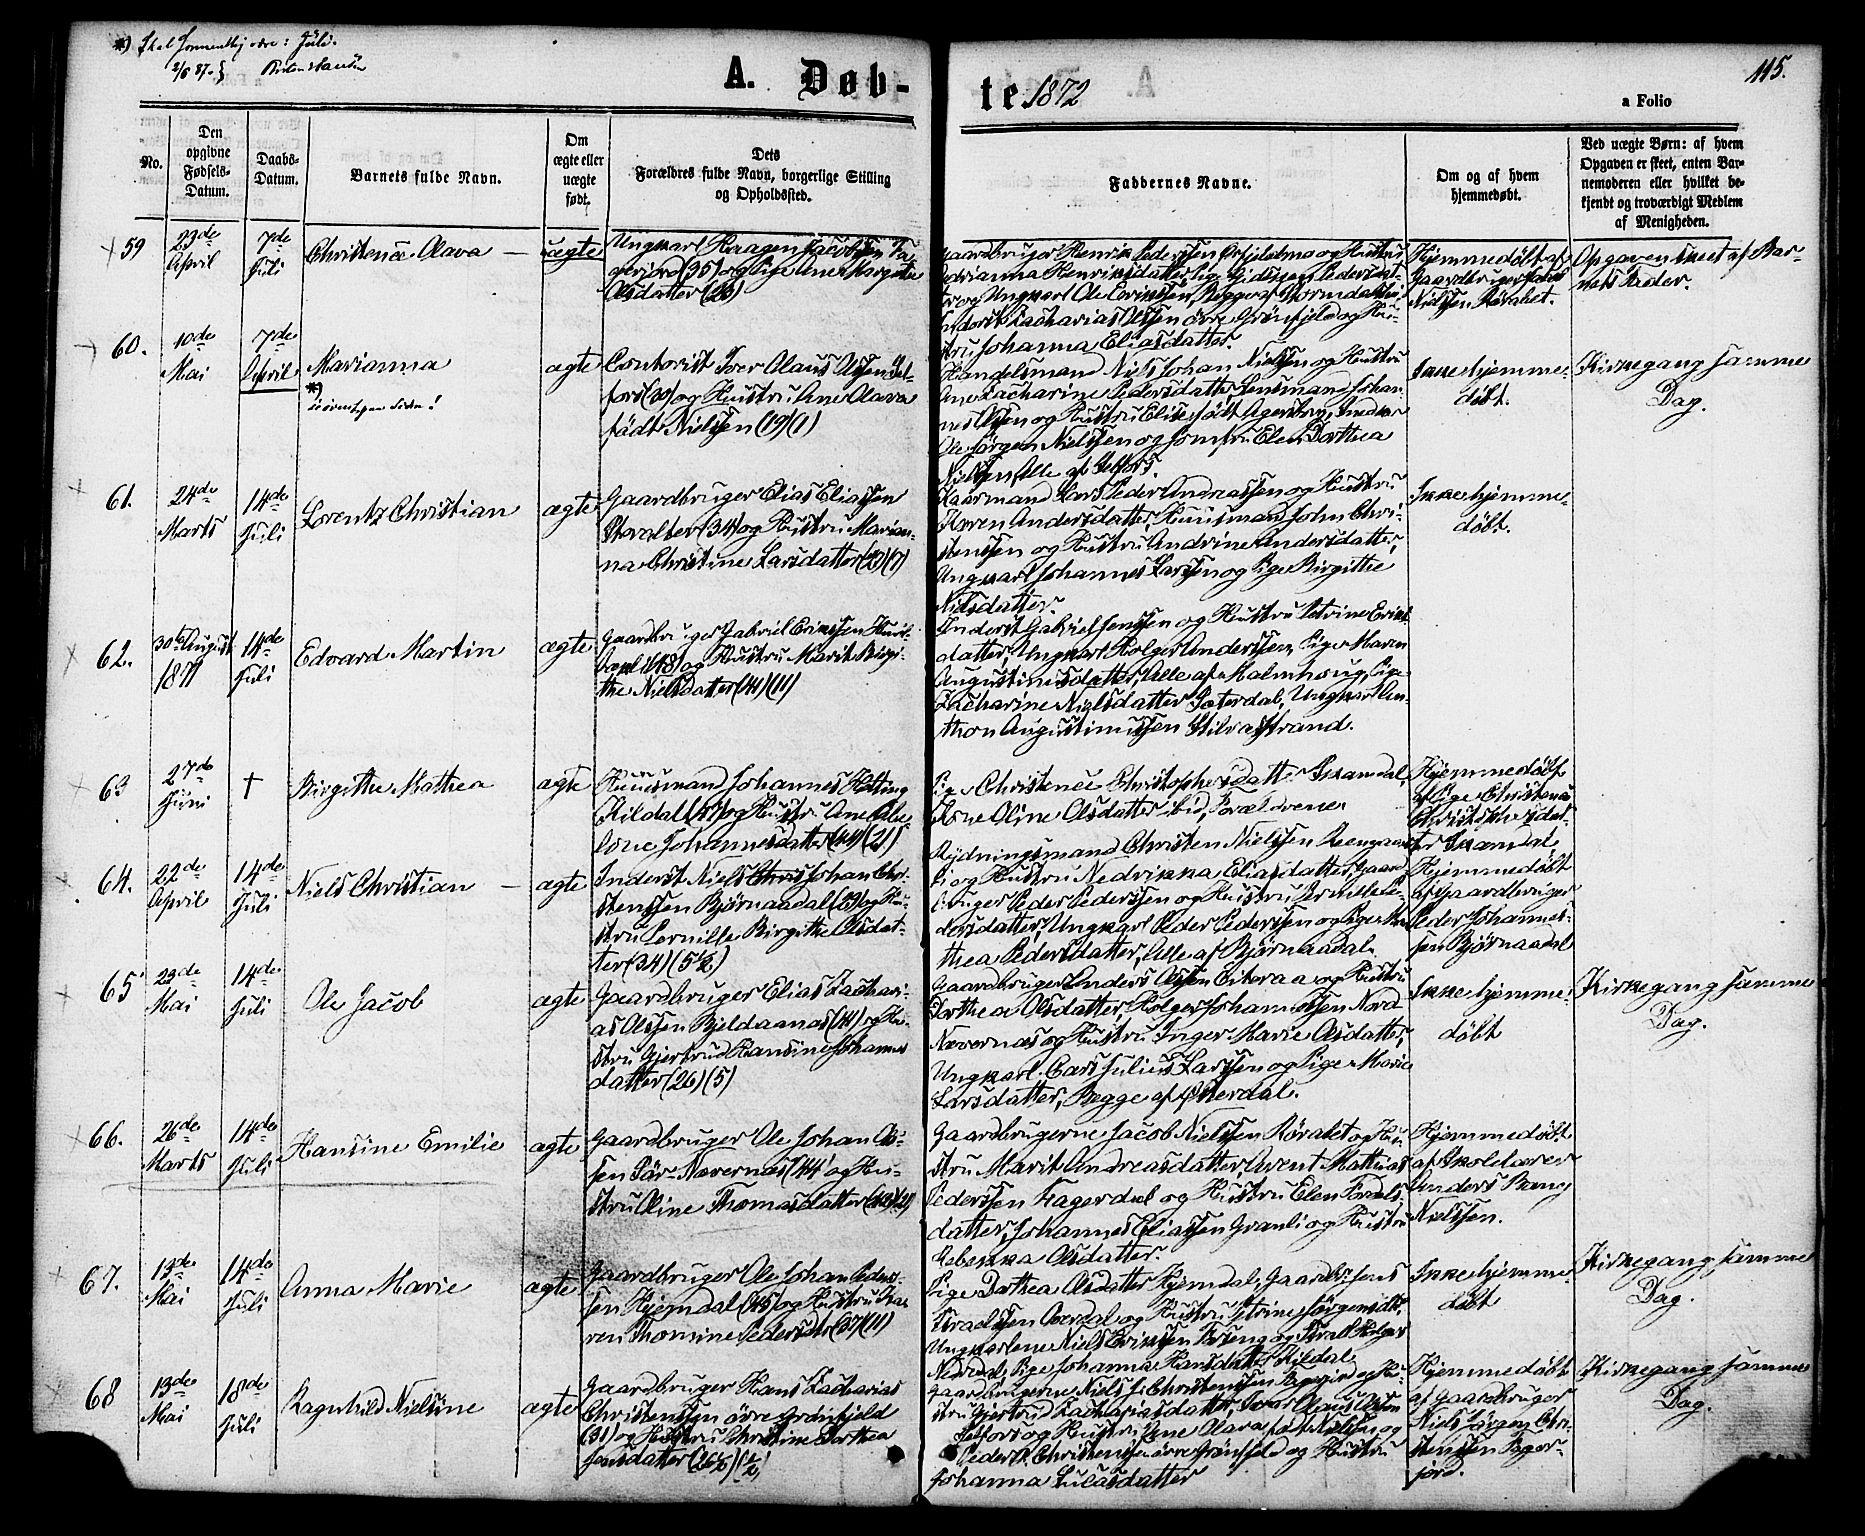 *) Skal formentlig være: Juli.
2/6 87.
A. Døb-
te 1872
115.
a Folio
No.
Den opgivne Fødsels-Datum.
Daabs-Datum.
Barnets fulde Navn.
Om ægte eller uægte født.
Dets Forældres fulde Navn, borgerlige Stilling og Opholdssted.
Faddernes Navne.
Om og af hvem hjemmedøbt.
Ved uægte Børn: af hvem Opgaven er skeet, enten Barnemoderen eller hvilket bekjendt og troværdigt Medlem af Menigheden.
59
23de April
7de Juli
Christence Olava
uægte
Ungkarl Haagen Jacobsen Fa-
gerjord (35) og Pige Ane Margrethe
Olsdatter (28)
Gaardbruger Henrik Pedersen
og Ungkarl Ole Erikssen, Begge af Stormdalshei
Inderst Zacharias Olssen øvre Grønfjeld og Hu-
stru Johanna Eliasdatter.
Hjemmedøbt af
Gaardbruger
Nielssen Røvatet.
Opgaven skeet af Bar-
nets Fader.
60.
10de Mai
7de April
Marianna
*)
ægte
Contorist Iver Olaus Olssen Sel-
fors (30) og Hustru Ane Olava
født Nielsen (19) (1)
Handelsmand Niels Johan Nielssen og Hustru
Ane Zacharine Pedersdatter, Lensmand Johan-
nes Olsen og Hustru Elise født Agersborg, Snedker
Ole Jørgen Nielssen og Jomfru Elen Dorthea
Nielsen, Alle af Selfors.
Ikke hjemme-
døbt.
Kirkegang samme
Dag.
61.
24de Marts
14de Juli
Lorentz Christian
ægte
Gaardbruger Elias Eliassen
Storalter (34) og Hustru Marian-
na Christine Larsdatter (29) (7)
Kaarmand Lars Peder Andreassen og Hustru
Karen Andersdatter, Huusmand John Chri-
stenssen og Hustru Andrine Andersdatter,
Ungkarl Johannes Larssen og Pige Birgithe
Nilsdatter.
Ikke hjemme-
døbt.
62.
30te August 1871
14de Juli
Edvard Martin
ægte
Gaardbruger Gabriel Erikssen
(48) og Hustru Marit Birgi-
the Nielsdatter (41) (11)
Inderst Gabriel Jenssen og Hustru Petrine Eriks-
datter, Ungkarl Holger Anderssen, Pige Maren
Augustinusdatter, Alle af Malmhaug, Pige
Zacharine Nielsdatter Sæterdal, Ungkarl An-
thon Augustinussen Stilvasstrand.
63
27de Juni
†
Birgithe Mathea
ægte
Huusmand Johannes Helling
Kildal (47) og Hustru Ane Abe-
lone Johannesdatter (44) (2)
Pige Christence Christophersdatter Skamdal,
Karne Oline Olsdatter ibid, Forældrene.
Hjemmedøbt
af Pige Christence
Christophersdat-
ter Skamdal
64.
22de April
14de Juli
Niels Christian
ægte
Inderst Niels Johan Chri-
stenssen Bjørnaadal (29) og Hu-
stru Pernille Birgithe Olsdat-
ter (34) (5½)
Rydningsmand Christen Nielssen
og Hustru Nedrikka Eliasdatter, Gaard-
bruger Peder Pederssen og Hustru Pernille Pe-
dersdatter, Ungkarl Peder Pederssen og Pige
thea Pedersdatter, Alle af Bjørnaadal.
Hjemmedøbt
af Gaardbruger
Peder Johannes-
sen Bjørnaadal
65
23de Mai
14de Juli
Ole Jacob
ægte
Gaardbruger Elias Zachari-
as Olssen Bjeldaanæs (41) og Hu-
stru Gjertrud Hansine Johannes
datter (26) (5)
Gaardbruger Anders Olssen Bitteraa og Hustru
Dorthea Olsdatter, Holger Johannessen Nord
Nævernæs og Hustru Inger Marie Olsdatter,
Ungkarl Lars Julius Larssen og Pige Marie
Larsdatter, Begge af Østerdal.
Ikke hjemme-
døbt
Kirkegang samme
Dag.
66.
26de Marts
14de Juli
Hansine Emilie
ægte
Gaardbruger Ole Johan Ol-
sen Sør-Nævernæs (44) og Hu-
stru Oline Thomasdatter (42) (2)
Gaardbrugerne Jacob Nielssen Røvatet og Hu-
stru Marit Andreasdatter, Arent Mathias
Pederssen Fagerdal og Hustru Elen Israels
datter, Johannes Eliassen Granli og Hustru
Rebekka Olsdatter.
Hjemmedøbt
af Skolelærer
Anders Bang
Nielssen.
67.
13de Mai
14de Juli
Anna Marie
ægte
Gaardbruger Ole Johan Peders-
sen Hjemdal (45) og Hustru Ka-
ren Thomine Pedersdtr (37) (11)
Pige Dorthea Olsdatter Hjemdal, Gaardbr. Jens
Israelssen Overdal og Hustru Petrine Jørgensdtr,
Ungkarlene Niels Erikssen og Israel Holger
Nerdal, Pige Johanna Hansdatter Kildal
Ikke hjemme-
døbt
Kirkegang samme
Dag.
68
13de Mai
18de Juli
Ragnhild Nielsine
ægte
Gaardbruger Hans Zacharias
Christenssen øvre Grønfjeld
(31) og Hustru Christine Dorthea
Jensdatter (26½) (½)
Gaardbrugerne Niels J. Christenssen Fagerjord og Hu-
stru Gjertrud Zachariasdatter, Iver Olaus Olssen
Selfors og Hustru Ane Olava født Nielssen og
Peder A. Christenssen øvre Grønfjeld og Hustru
Johanna Lucasdatter
Hjemmedøbt
af Gaardbruger
Niels Jørgen Chri-
stenssen Fager-
jord.
Kirkegang samme
Dag.